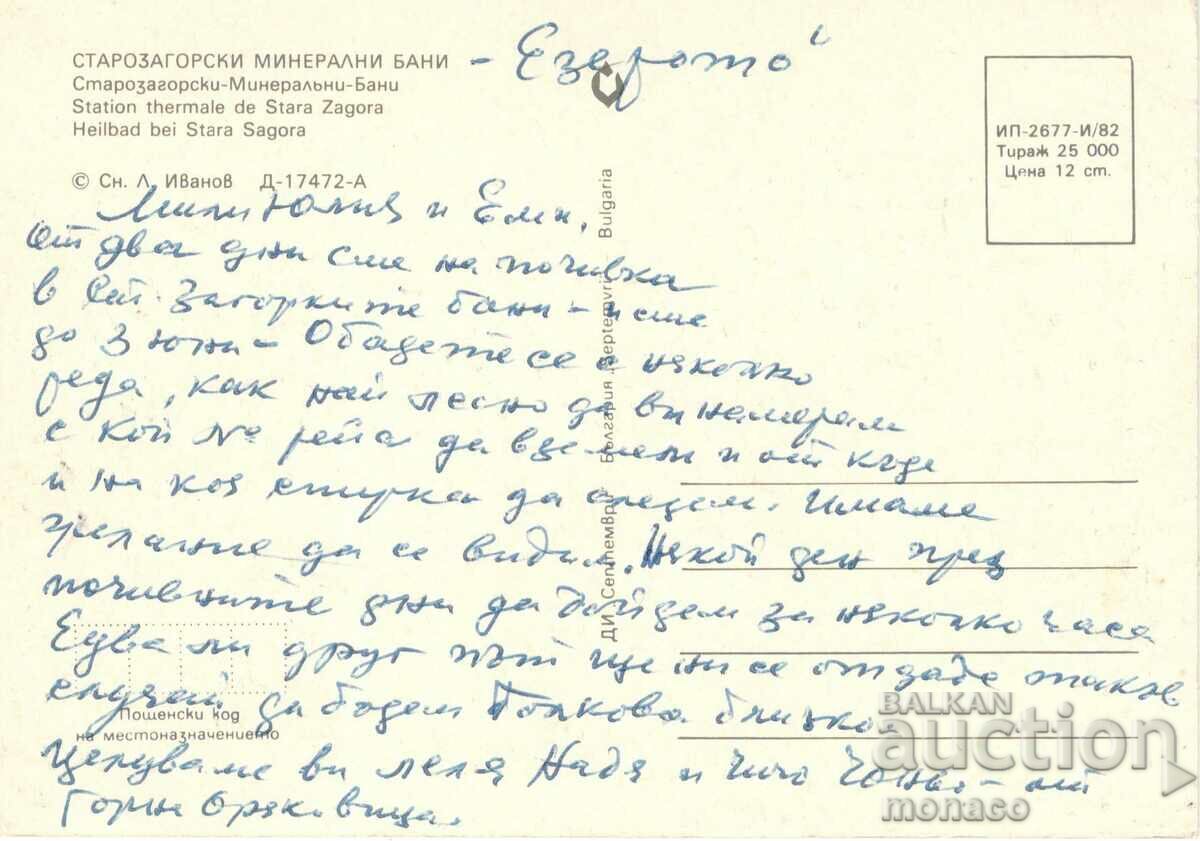 СТАРОЗАГОРСКИ МИНЕРАЛНИ БАНИ - „Езерото“
Старозагорски-Минеральни-Бани
Station thermale de Stara Zagora
Heilbad bei Stara Sagora
© Сн. Л. Иванов Д-17472-А
ИП-2677-И/82
Тираж 25 000
Цена 12 ст.
ДИ „Септември“ България „Septemvri“ Bulgaria
Мили Юлия и Еми,
От два дни сме на почивка
в Ст. Загорките бани - и сме
до 3 юни - Обадете се с няколко
реда, как най лесно да ви намерим
с кой № рейс да вземем и от къде
и на коя спирка да слезем. Имаме
желание да се видим. Някой ден през
почивните дни да дойдем за няколко часа
Едва ли друг път ще ни се отдаде такъв
случай да бъдем толкова близко
Целуваме ви леля Надя и чичо - от
Горна Оряховица.
Пощенски код
на местоназначението
BALKAN
auction
monaco